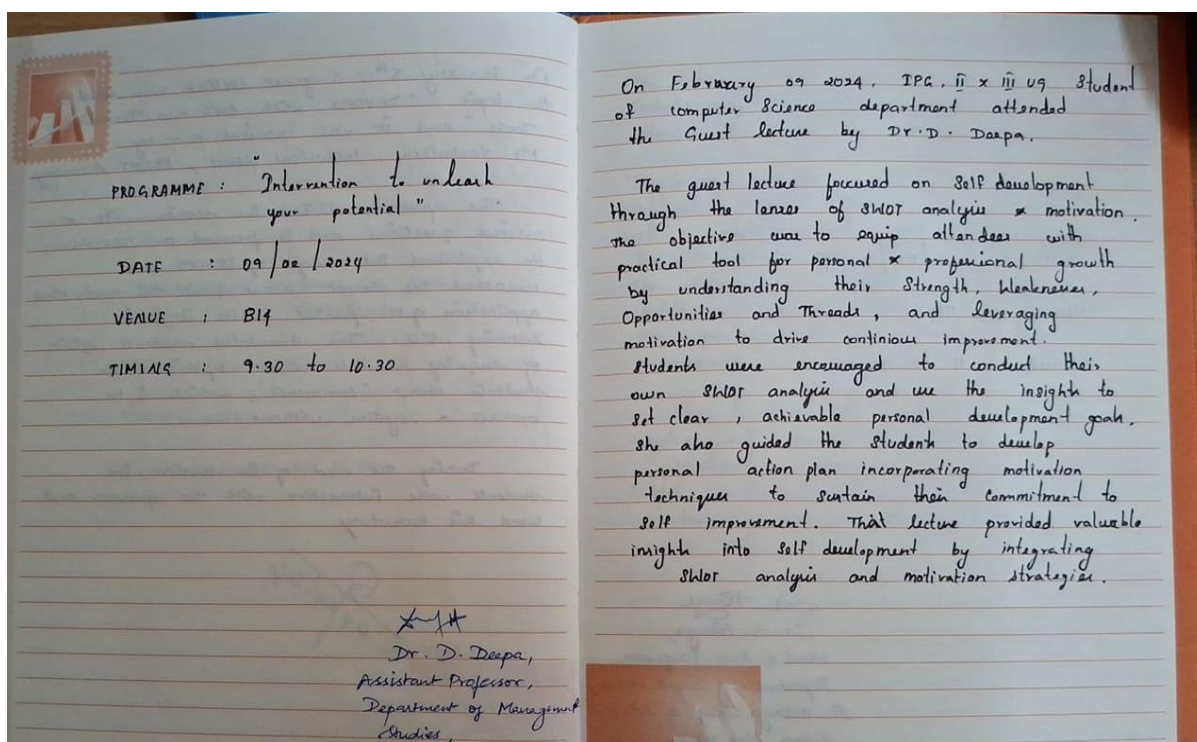 PROGRAMME : "Intervention to unleash
your potential"
DATE : 09/02/2024
VENUE : B14
TIMING : 9.30 to 10.30
Dr. D. Deepa,
Assistant Professor,
Department of Management
Studies,
On February 09 2024, IPG, II & III UG Student
of computer Science department attended
the Guest lecture by Dr. D. Deepa.
The guest lecture foccused on Self development
through the lenses of SWOT analysis & motivation.
The objective was to equip attendees with
practical tool for personal & professional growth
by understanding their Strength, Weaknesses,
Opportunities and Threads, and leveraging
motivation to drive continious improvement.
Students were encouraged to conduct their
own SWOT analysis and use the insight to
set clear, achievable personal development goals.
She also guided the Student to develop
personal action plan incorporating motivation
techniques to sustain their commitment to
Self improvement. That lecture provided valuable
insight into Self development by integrating
SWOT analysis and motivation strategies.